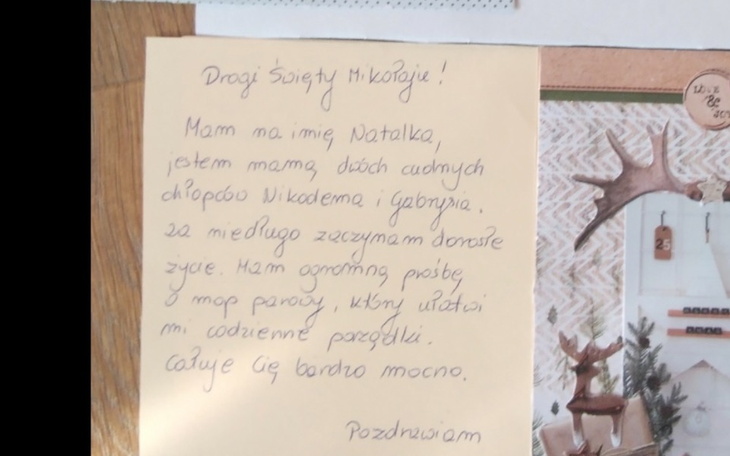 Drogi Święty Mikołaju!
Mam na imię Natalka,
jestem mamą dwóch cudnych
chłopców Nikodema i Gabrysia.
za niedługo zaczynam dorosłe
życie. Mam ogromną prośbę
o mop parowy, który ułatwi
mi codzienne porządki.
Całuje Cię bardzo mocno.
Pozdrawiam
&
25